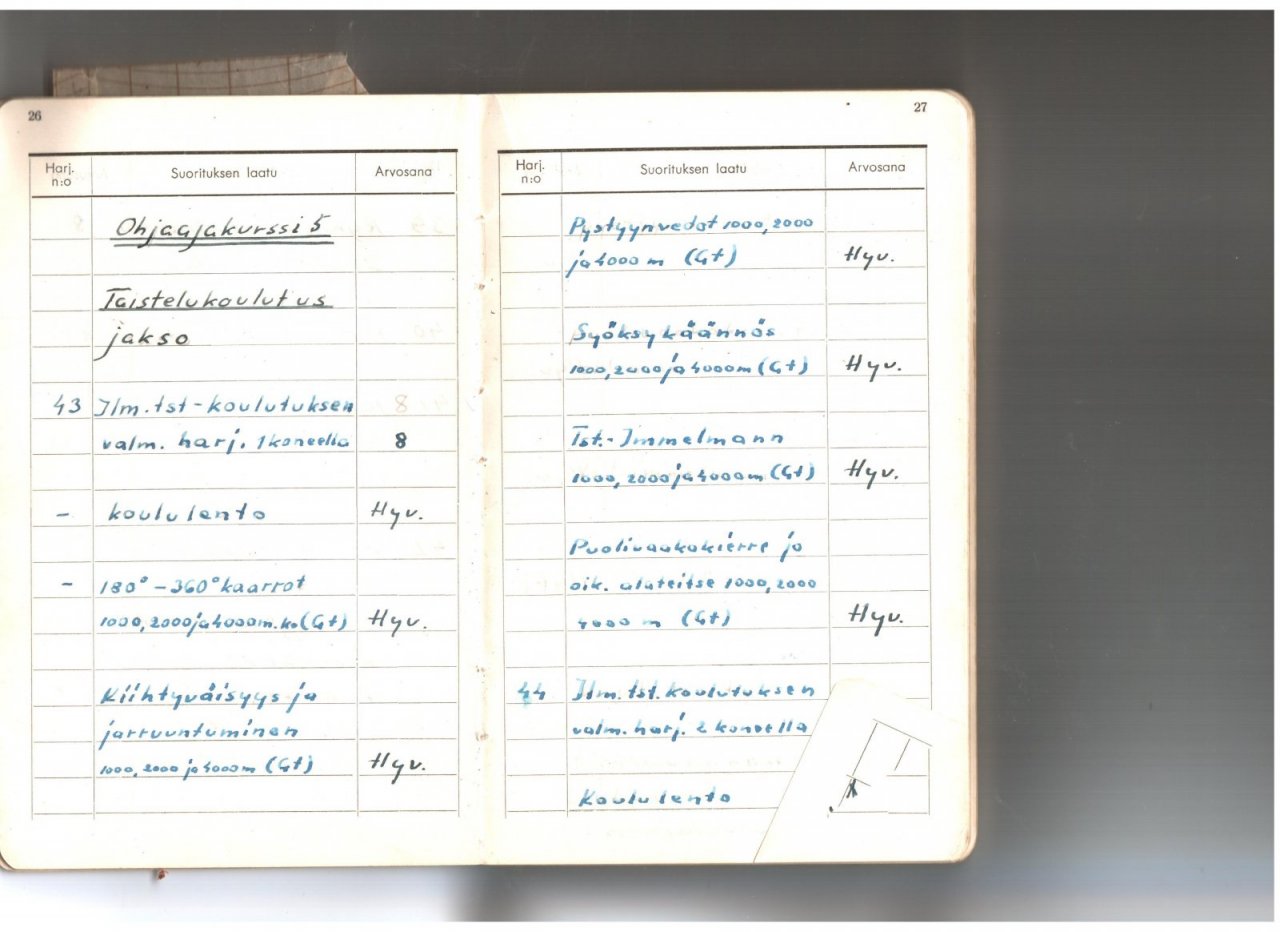 26
Harj. n:o Suorituksen laatu Arvosana
Ohjaajakurssi 5
Taistelukoulutus
jakso
43 Ilm. tst-koulutuksen
valm. harj. 1 koneella 8
- koululento Hyv.
- 180° - 360° kaarrot
1000, 2000 ja 4000 m. ko (Gt) Hyv.
Kiihtyväisyys ja
jarruuntuminen
1000, 2000 ja 4000 m (Gt) Hyv.
27
Harj. n:o Suorituksen laatu Arvosana
Pystyynvedot 1000, 2000
ja 4000 m (Gt) Hyv.
Syöksykäännös
1000, 2000 ja 4000 m (Gt) Hyv.
Tst.-Immelmann
1000, 2000 ja 4000 m (Gt) Hyv.
Puolivaakakierre ja
oik. alateitse 1000, 2000
4000 m (Gt) Hyv.
44 Ilm. tst. koulutuksen
valm. harj. 2 koneella
Koululento